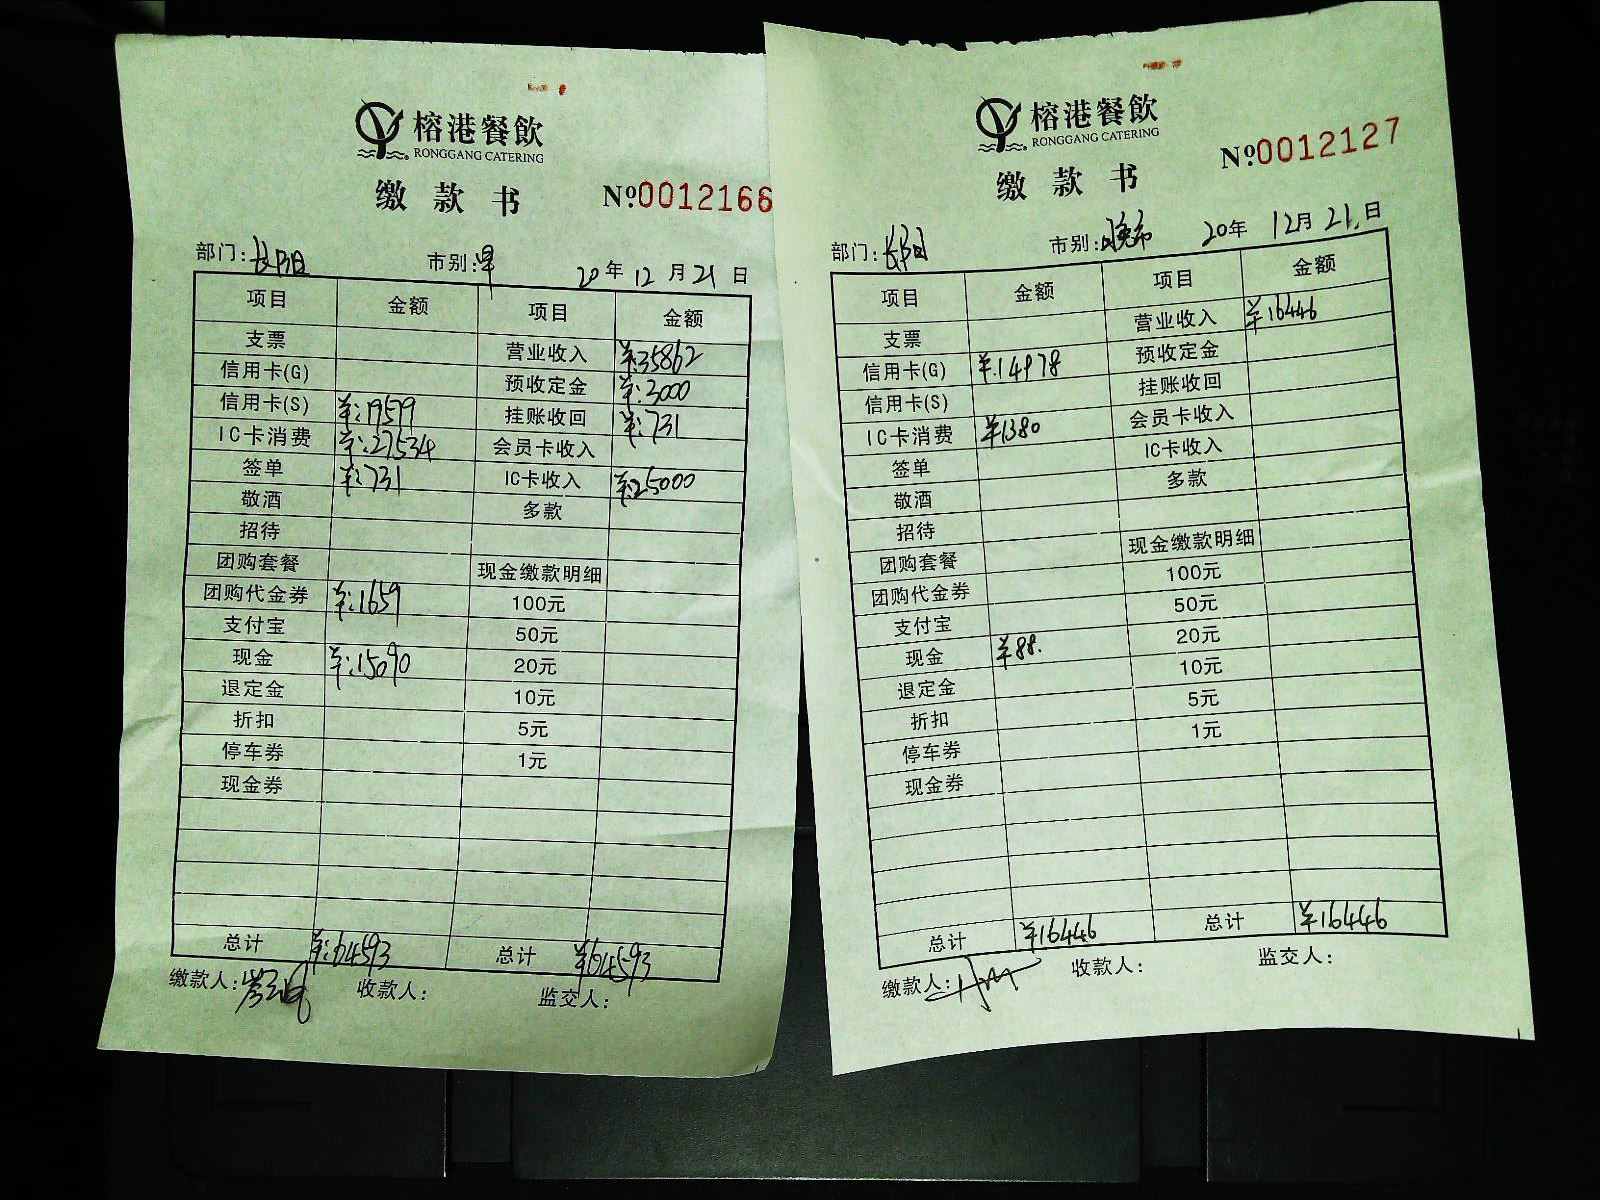 榕港餐飲
RONGGANG CATERING
缴款书 Nº:0012166
部门:长阳 市别:早 20年12月21日
项目 金额 项目 金额
支票 营业收入 ¥:35862
信用卡(G) 预收定金 ¥:3000
信用卡(S) ¥:19579 挂账收回 ¥:731
IC卡消费 ¥:27534 会员卡收入
签单 ¥:731 IC卡收入 ¥:25000
敬酒 多款
招待
团购套餐 现金缴款明细
团购代金券 ¥:1659 100元
支付宝 50元
现金 ¥:15090 20元
退定金 10元
折扣 5元
停车券 1元
现金券
总计 ¥:64593 总计 ¥64593
缴款人: 收款人: 监交人:
榕港餐飲
RONGGANG CATERING
缴款书 Nº:0012127
部门:长阳 市别:晚市 20年12月21日
项目 金额 项目 金额
支票 营业收入 ¥16446
信用卡(G) ¥:14978 预收定金
信用卡(S) 挂账收回
IC卡消费 ¥1380 会员卡收入
签单 IC卡收入
敬酒 多款
招待
团购套餐 现金缴款明细
团购代金券 100元
支付宝 50元
现金 ¥88. 20元
退定金 10元
折扣 5元
停车券 1元
现金券
总计 ¥16446 总计 ¥16446
缴款人: 收款人: 监交人: